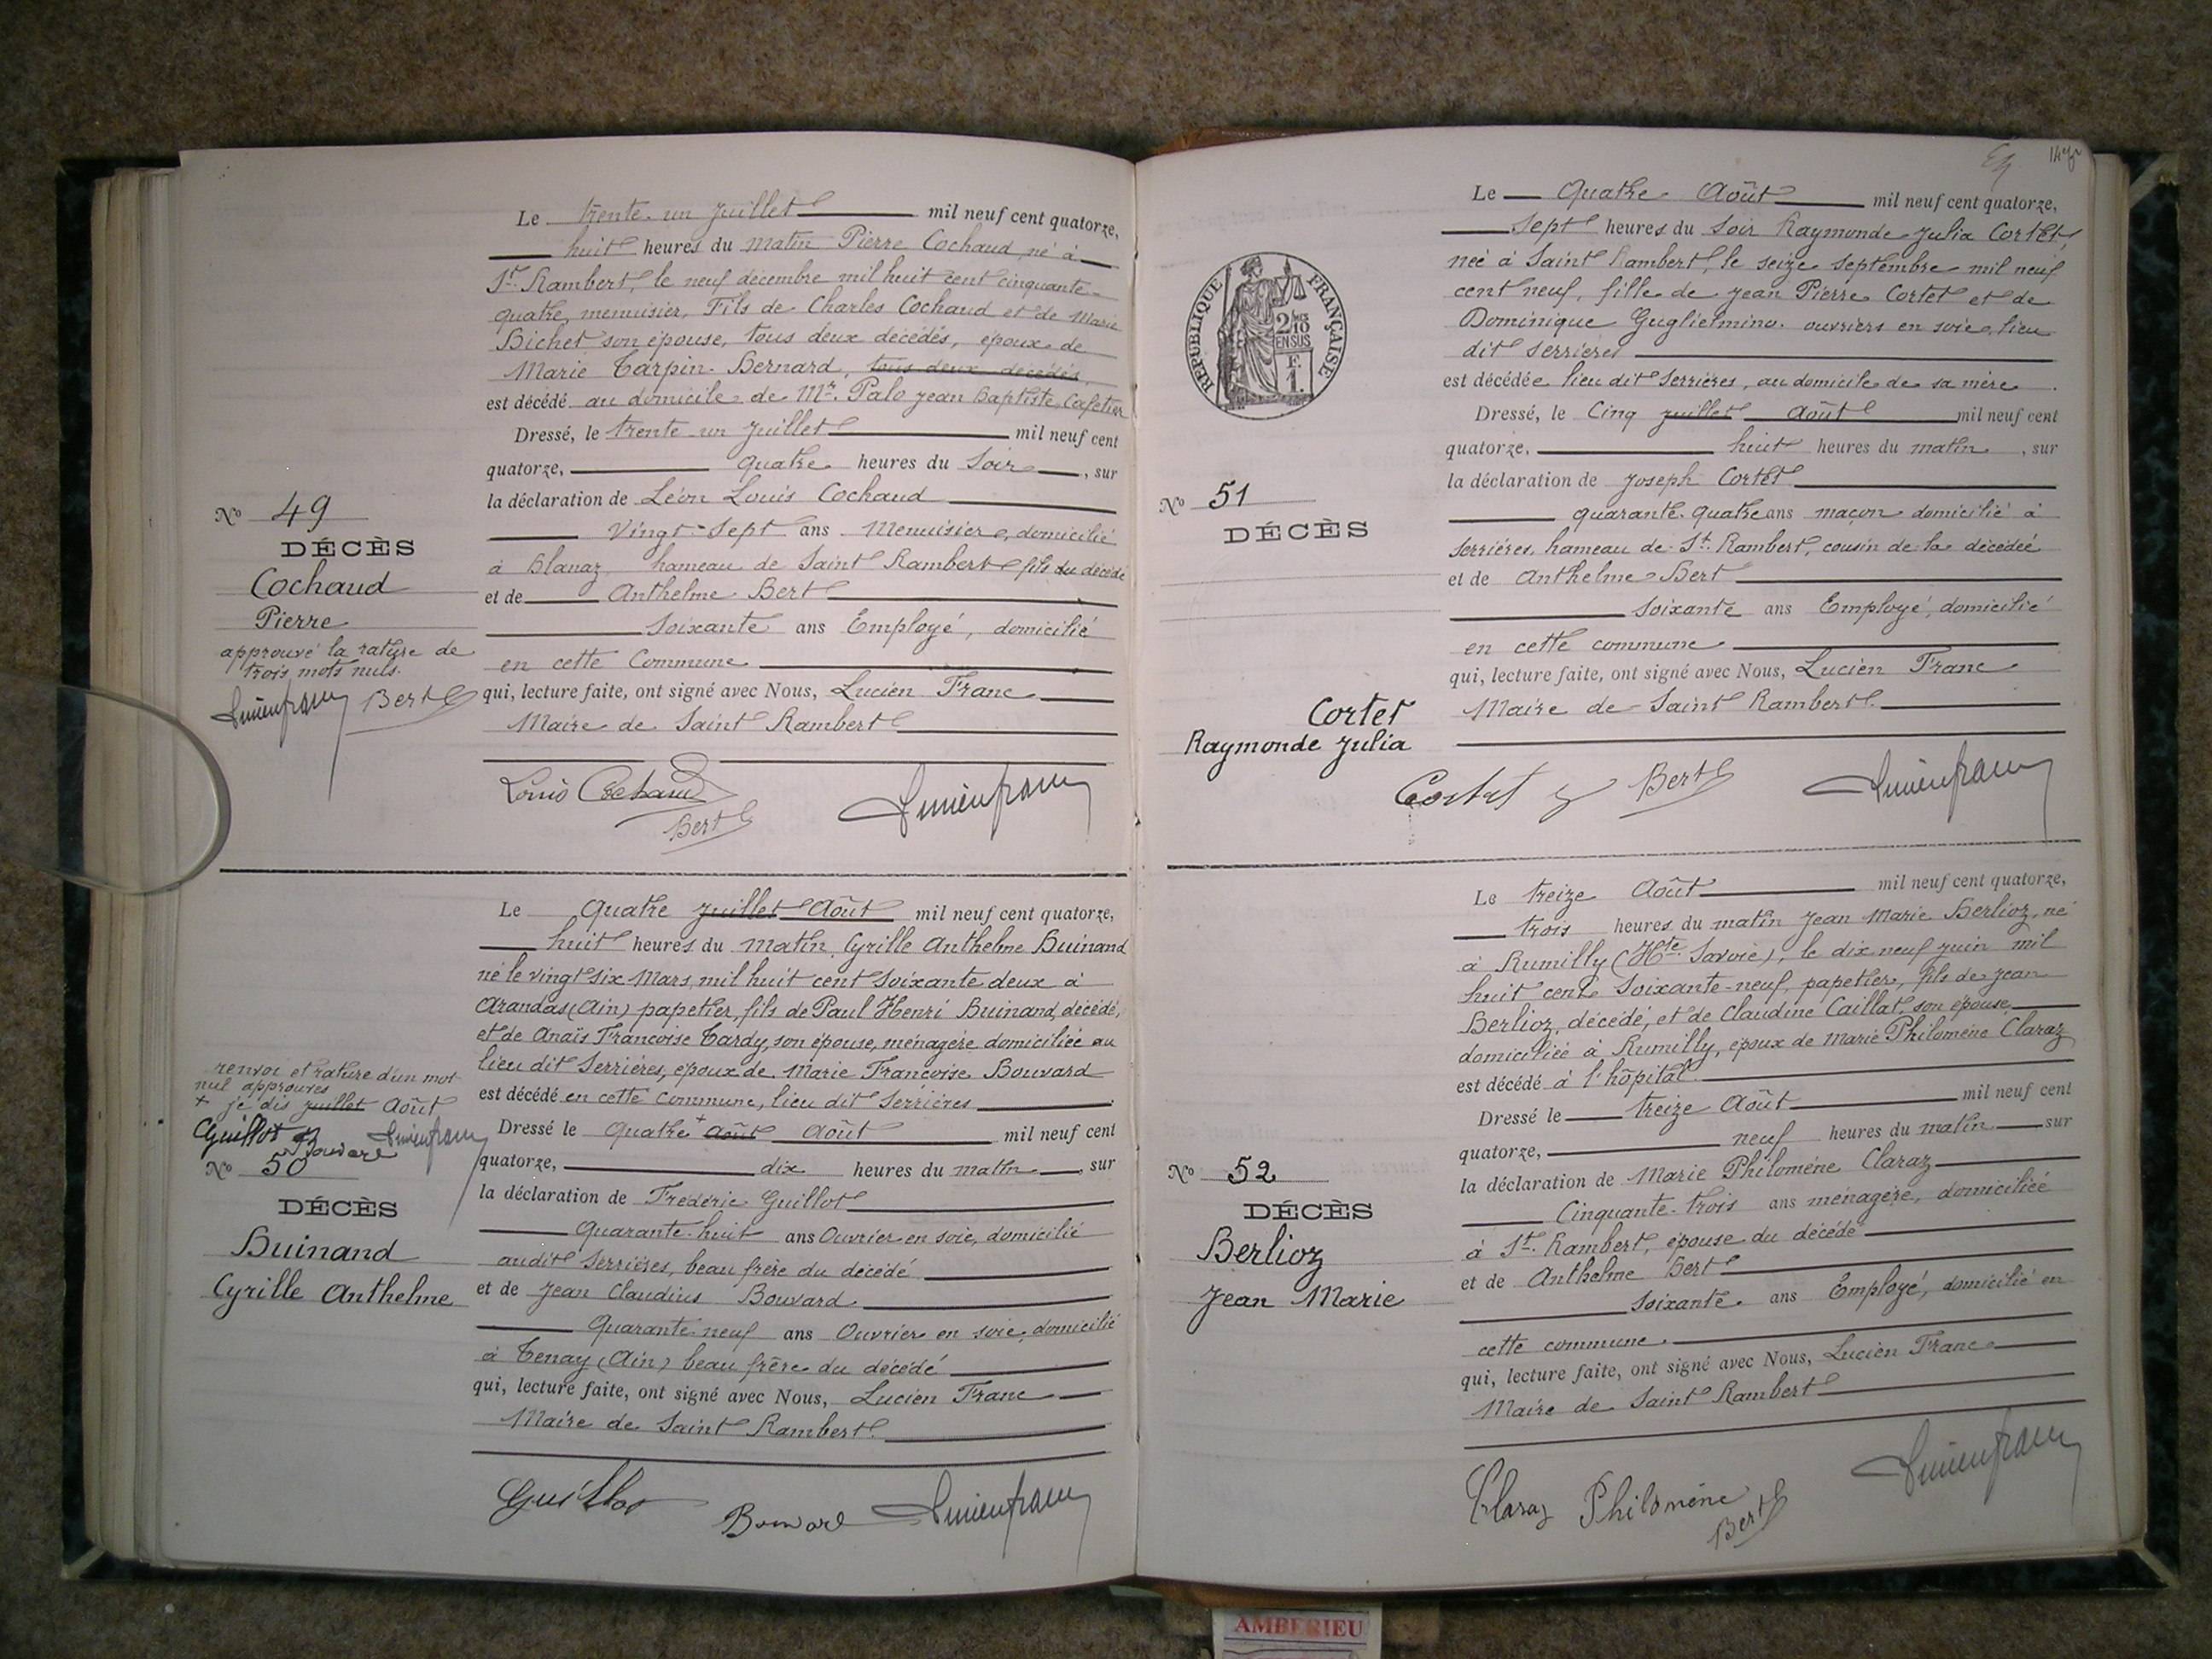 Le trente-un Juillet mil neuf cent quatorze,
huit heures du matin Pierre Cochaud, né à
St. Rambert, le neuf décembre mil huit cent cinquante-
quatre, menuisier, Fils de Charles Cochaud et de Marie
Bichet son épouse, tous deux décédés, époux de
Marie Tarpin-Bernard, tous deux décédés,
est décédé au domicile de Mr. Palo Jean Baptiste, Cafetier
Dressé, le trente-un Juillet mil neuf cent
quatorze, quatre heures du Soir, sur
la déclaration de Léon Louis Cochaud
Vingt-Sept ans Menuisier, domicilié
à Blanaz hameau de Saint Rambert fils du décédé
et de Anthelme Bert
Soixante ans Employé, domicilié
en cette Commune
qui, lecture faite, ont signé avec Nous, Lucien Franc
Maire de Saint Rambert
Louis Cochaud
Bert
Lucien franc
No 49
DÉCÈS
Cochaud
Pierre
approuvé la rature de
trois mots nuls.
Lucien franc Bert
Le Quatre Juillet Août mil neuf cent quatorze,
huit heures du matin, Cyrille Anthelme Buinand
né le vingt six Mars, mil huit cent soixante deux à
Arandas (Ain) papetier, fils de Paul Henri Buinand, décédé,
et de Anaïs Françoise Tardy, son épouse, ménagère domiciliée au
lieu dit Serrières, époux de Marie Françoise Bouvard
est décédé en cette commune, lieu dit Serrières
Dressé le Quatre + Août Août mil neuf cent
quatorze, dix heures du matin, sur
la déclaration de Frédéric Guillot
Quarante-huit ans Ouvrier en soie, domicilié
audit Serrières, beau frère du décédé
et de Jean Claudius Bouvard
Quarante neuf ans Ouvrier en soie, domicilié
à Tenay (Ain) beau frère du décédé
qui, lecture faite, ont signé avec Nous, Lucien Franc
Maire de Saint Rambert.
Guillot
Bouvard
Lucien franc
renvoi et rature d'un mot
nul approuvés
+ je dis juillet Août
Guillot Bouvard Lucien franc
No 50
DÉCÈS
Buinand
Cyrille Anthelme
Le Quatre Août mil neuf cent quatorze,
Sept heures du Soir Raymonde Julia Cortet,
née à Saint Rambert, le seize Septembre mil neuf
cent neuf, fille de Jean Pierre Cortet et de
Dominique Guglielmino, ouvriers en soie, lieu
dit Serrières
est décédée lieu dit Serrières, au domicile de sa mère.
Dressé, le Cinq juillet Août mil neuf cent
quatorze, huit heures du matin, sur
la déclaration de Joseph Cortet
quarante-quatre ans maçon domicilié à
Serrières, hameau de St. Rambert, cousin de la décédée
et de Anthelme Bert
Soixante ans Employé, domicilié
en cette commune
qui, lecture faite, ont signé avec Nous, Lucien Franc
Maire de Saint Rambert.
Cortet
Bert
Lucien franc
RÉPUBLIQUE FRANÇAISE
2/10
EN SUS
F.
1.
No 51
DÉCÈS
Cortet
Raymonde Julia
Le treize Août mil neuf cent quatorze,
trois heures du matin Jean Marie Berlioz, né
à Rumilly (Hte. Savoie), le dix neuf juin mil
huit cent Soixante-neuf, papetier, fils de Jean
Berlioz, décédé, et de Claudine Caillat, son épouse,
domiciliée à Rumilly, époux de Marie Philomène Claraz
est décédé à l'hôpital.
Dressé le treize Août mil neuf cent
quatorze, neuf heures du matin sur
la déclaration de Marie Philomène Claraz
Cinquante-trois ans ménagère, domiciliée
à St. Rambert, épouse du décédé
et de Anthelme Bert
Soixante ans Employé, domicilié en
cette commune.
qui, lecture faite, ont signé avec Nous, Lucien Franc
Maire de Saint Rambert
Claraz Philomène
Bert
Lucien franc
No 52
DÉCÈS
Berlioz
Jean Marie
AMBERIEU